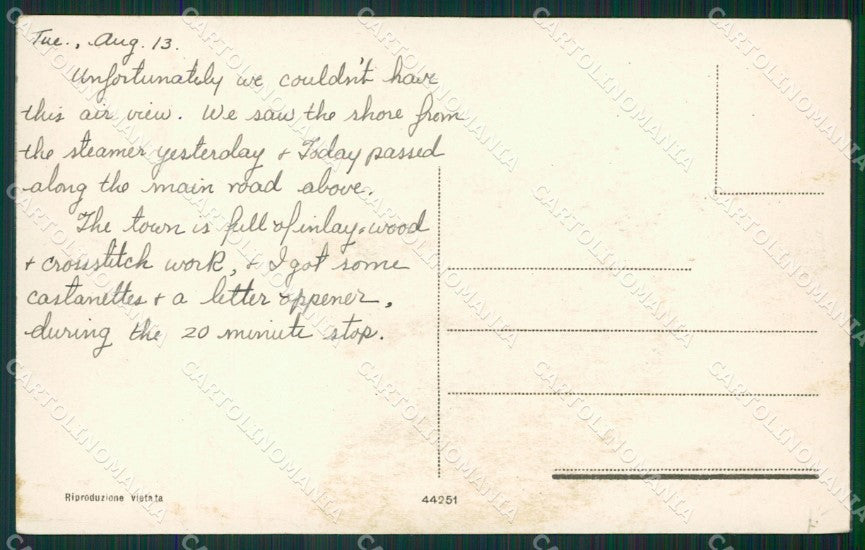 Tue., Aug. 13.
Unfortunately we couldn't have
this air view. We saw the shore from
the steamer yesterday + Today passed
along the main road above.
The town is full of inlay-wood
+ crosstitch work, + I got some
castanettes + a letter oppener,
during the 20 miniute stop.
Riproduzione vietata
44251
CARTOLINOMANIA